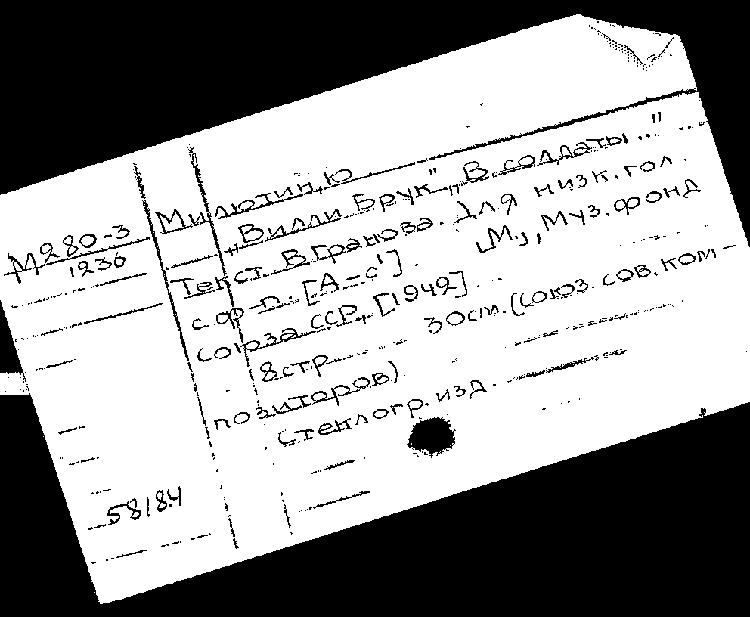 М280-3
1236
Милютин, Ю
„Вилли Брук" „В солдаты..."
Текст В. Гранова. Для низк. гол.
с ф-п. [А-с']. М., Муз. фонд
союза ССР, [1949].
8 стр. 30 см. (союз. сов. ком-
позиторов)
Стеклогр. изд.
58184